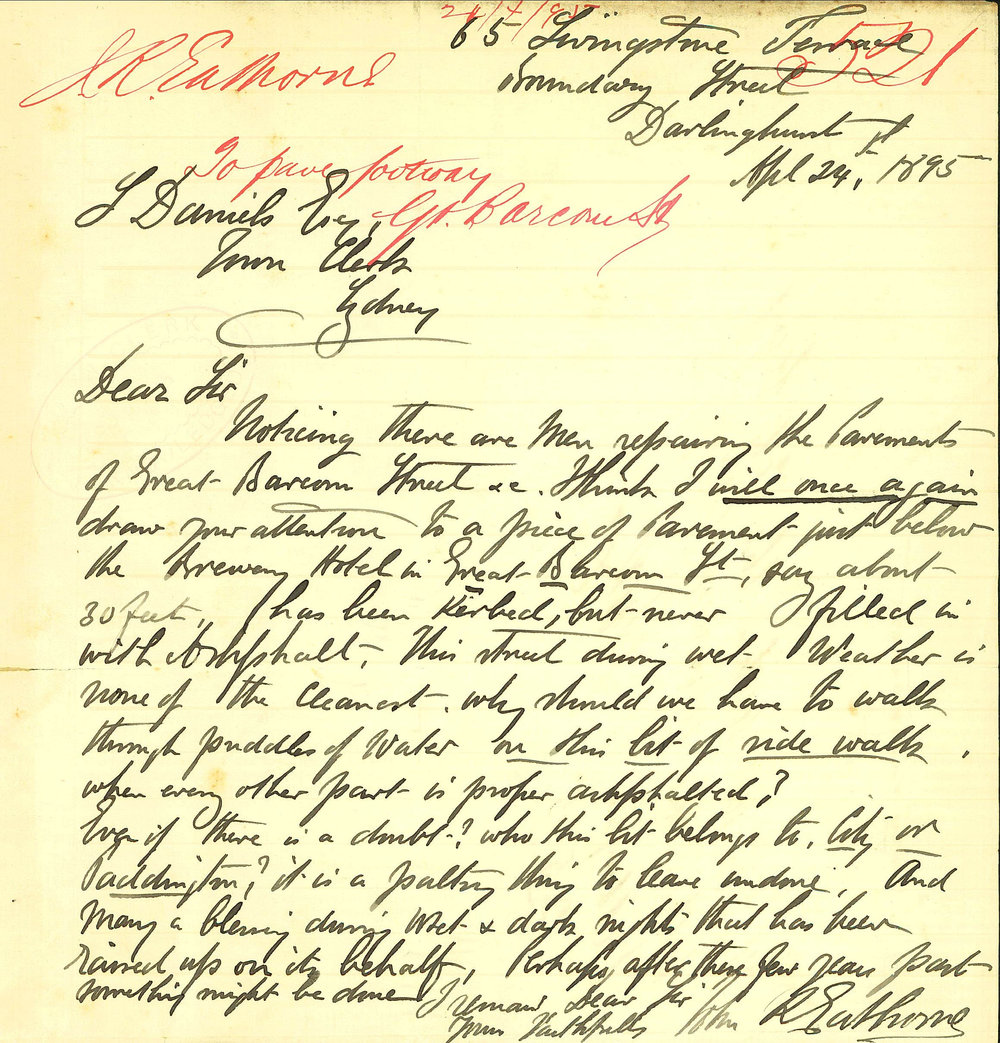 24/4/95
521
J. R. Eathorne
65 Livingstone Terrace
Boundary Street
Darlinghurst
Apl 24th, 1895
To pave footway
Gt. Barcom St
S Daniels Esq,
Town Clerk
Sydney
Dear Sir
Noticing there are Men repairing the Pavements
of Great Barcom Street &c. I think I will once again
draw your attention to a piece of Pavement just below
the Brewery Hotel in Great Barcom St, say about
30 feet, has been Kerbed, but never filled in
with Ashphalt, This street during wet Weather is
none of the cleanest. why should we have to walk
through puddles of Water on this bit of side walk,
when every other part is proper ashphalted?
Even if there is a doubt? who this bit belongs to, City or
Paddington? it is a paltry thing to leave undone, And
Many a blessing during Wet & dark nights that has been
raised up on its behalf, Perhaps, after these few years past
something might be done I remain Dear Sir
Yours Faithfully John R Eathorne